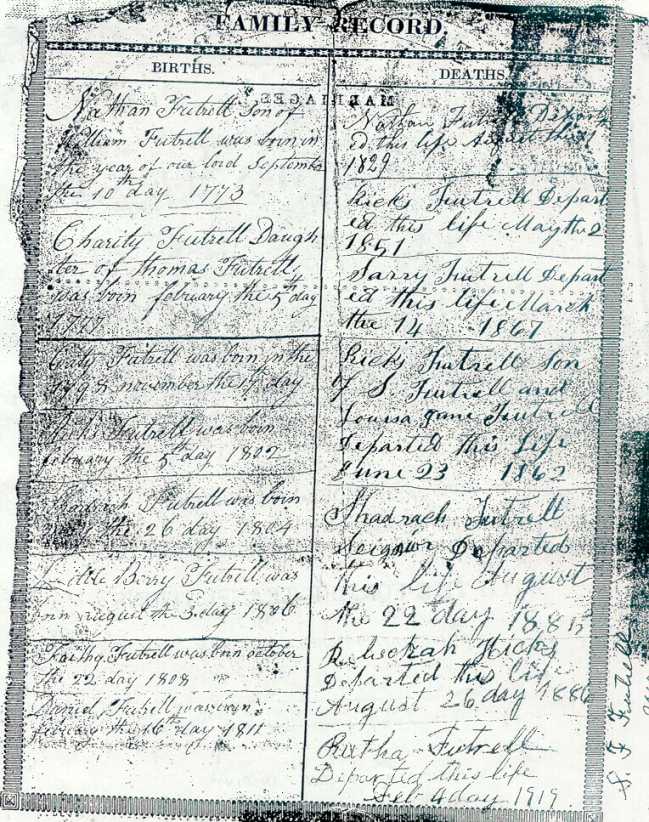 FAMILY RECORD.
BIRTHS.
Nathan Futrell Son of
William Futrell was born in
the year of our lord September
the 10th day 1773
Charity Futrell Daugh
ter of thomas Futrell
was born february the 5th day
Caty Futrell was born in the
1798 november the 17 day
Ricks Futrell was born
february the 5th day 1802
Shadrach Futrell was born
the 26 day 1804
Berry Futrell was
born august the 3 day 1806
Faitha Futrell was born october
the 22 day 1808
Daniel Futrell was born
february the 16th day 1811
DEATHS.
MARRIAGES
Nathan Futrell Depart
ed this life
1829
Ricks Futrell Depart
ed this life May the 2
1851
Sarry Futrell Depart
ed this life March
the 14 1867
Ricks Futrell Son
of S. Futrell and
Louisa Jane Futrell
Departed this Life
June 23 1862
Shadrach Futrell
Departed
this life August
the 22 day 1885
Deborah Hicks
Departed this life
August 26 day 1886
Rutha Futrell
Departed this life
Feb 4 day 1919
S F Futrell